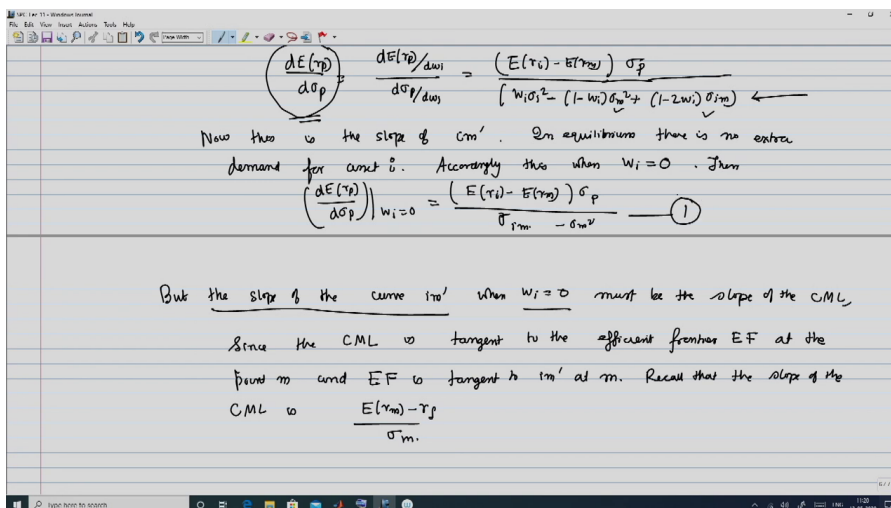 File Edit View Insert Actions Tools Help
Page Width
dE(rp)/dσp = dE(rp)/dwi / dσp/dwi = (E(ri) - E(rm)) σp / (wiσi² - (1-wi)σm² + (1-2wi)σim)
Now this is the slope of im'. In equilibrium there is no extra
demand for asset i. Accordingly this when wi = 0. Then
(dE(rp)/dσp)|wi=0 = (E(ri) - E(rm)) σp / σim - σm² — 1
But the slope of the curve im' when wi = 0 must be the slope of the CML,
Since the CML is tangent to the efficient frontier EF at the
point m and EF is tangent to im' at m. Recall that the slope of the
CML is E(rm) - rf / σm.
Type here to search
11:20
ENG